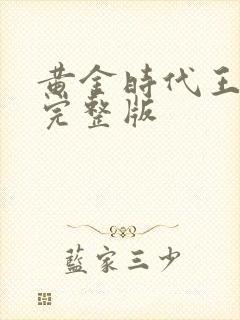 黃金時代王
完整版
藍家三少